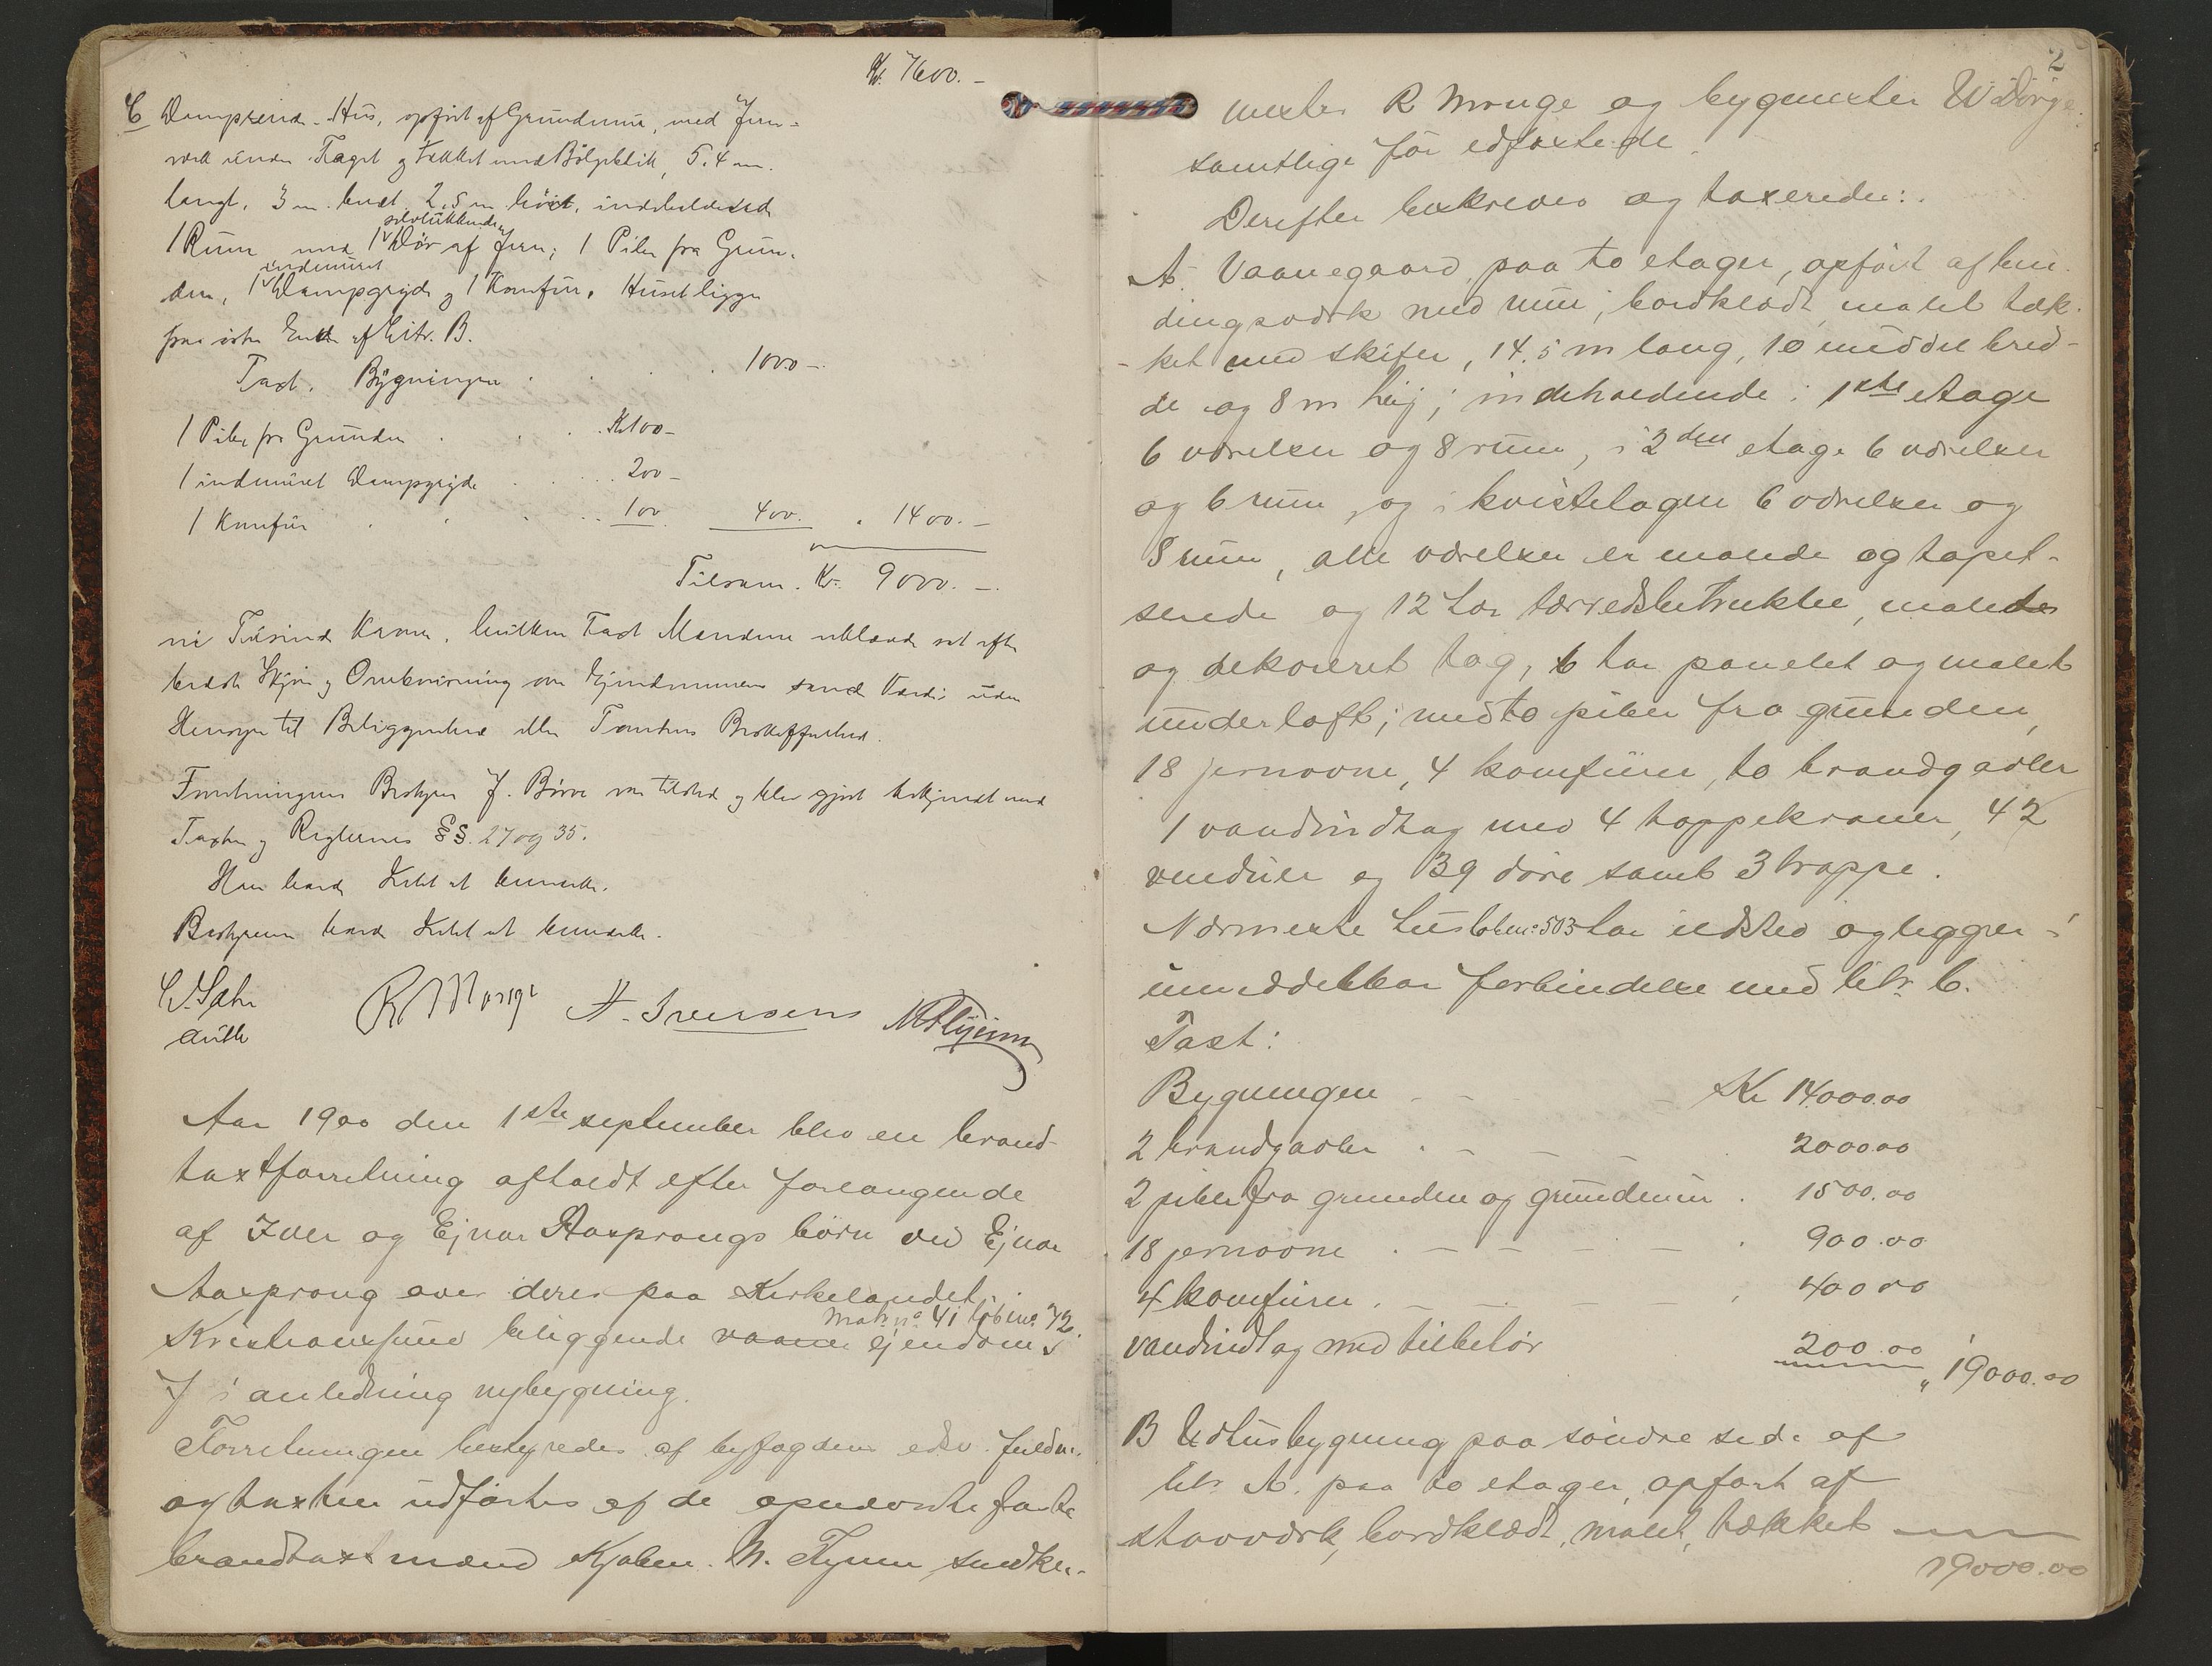 Kr. 7600.-
C Dampkjeder-Hus, opført af Grundmur, med Jern-
verk under Taget og tækket med Bølgeblik, 5.4 m.
langt, 3 m. bredt, 2,5 m. høit, indeholdende
1 Rum med 1 selvlukkende Dør af Jern; 1 Pibe fra Grun-
den, 1 indmuret Dampgryde og 1 Komfur. Huset ligger
paa østre Ende af Litr. B.
Taxt. Bygningen . . . . 1000 -
1 Pibe fra Grunden . . . Kr 100 -
1 indmuret Dampgryde . . . 200 -
1 Komfur . . . . 100 400. " 1400.-
Tilsam. Kr. 9000.-
ni Tusinde Kroner, hvilken Taxt Mændene erklærede sat efter
bedste Skjøn og Overbevisning om Ejendommens sande Værdi uden
Hensyn til Beliggenhed eller Tomtens Beskaffenhed.
Forretningens Bestyrer J. Børre var tilstede og blev gjort bekjendt med
Taxten og Reglernes §§ 27 og 35.
Han havde Intet at bemærke.
Bestyreren havde Intet at bemærke.
R Monge A. Iversen
Aar 1900 den 1ste september blev en brand-
taxtforretning afholdt efter forlangende
af Iver og Ejnar Aasprongs börn ved Ejnar
Aasprong over deres paa Kirkelandet,
Matr. no 41 löbeno 72.
Kristiansund beliggende ejendom,
i anledning nybygning.
Forretningen bestyredes af byfogdens edsv. fuldm.
og taxten udförtes af de opnævnte faste
brandtaxtmænd Kjøbm. N. Flyum snedker-
2
mester R Monge og bygmester W Dörge
samtlige för edfæstede.
Derefter beskreves og taxeredes:
A. Vaanegaard, paa to etager, opfört af bin-
dingsværk med mur, bordklædt, malet tæk-
ket med skifer, 14.5 m lang, 10 m middel bred-
de og 8 m høj; indeholdende i 1ste etage
6 værelser og 8 rum, i 2den etage 6 værelser
og 6 rum, og i kvistetagen 6 værelser og
8 rum, alle værelser er malede og tapet-
serede og 12 har lærredsbetrukket, malet
og dekoreret tag, 6 har panelet og malet
underloft; med to piber fra grunden,
18 jernovne, 4 komfurer, to brandgavler
1 vandindtag med 4 tappekraner, 42
venduer og 39 döre samt 3 trappe.
Nærmeste hus löbeno 503 har ildsted og ligger i
umiddelbar forbindelse med litr. C.
Taxt:
Bygningen - - - Kr 14000.00
2 brandgavler . - - - 2000.00
2 piber fra grunden og grundmur . 1500.00
18 jernovne . - - - - . 900.00
4 komfurer . - - - - . 400.00
vandindtag med tilbehör 200.00 " 19000.00
B Udhusbygning paa söndre side af
litr A. paa to etager, opfört af
stavværk, bordklædt, malet, tækket
19000.00